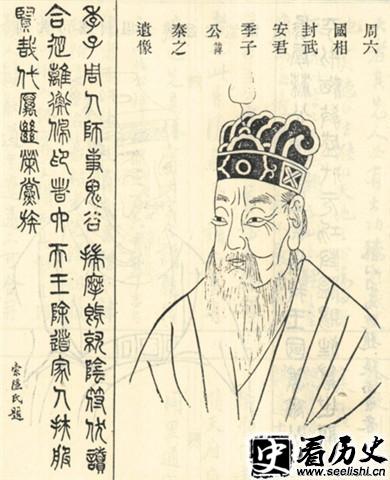 周六
國相
封武
安君
季子
公諱
秦之
遺像
季子周人師事鬼谷揣摩既就陰符伏讀
合從離衡佩印者六天王除道家人扶服
賢哉代厲繼榮黨族
索隱氏題
史看历史
www.seelishi.cn